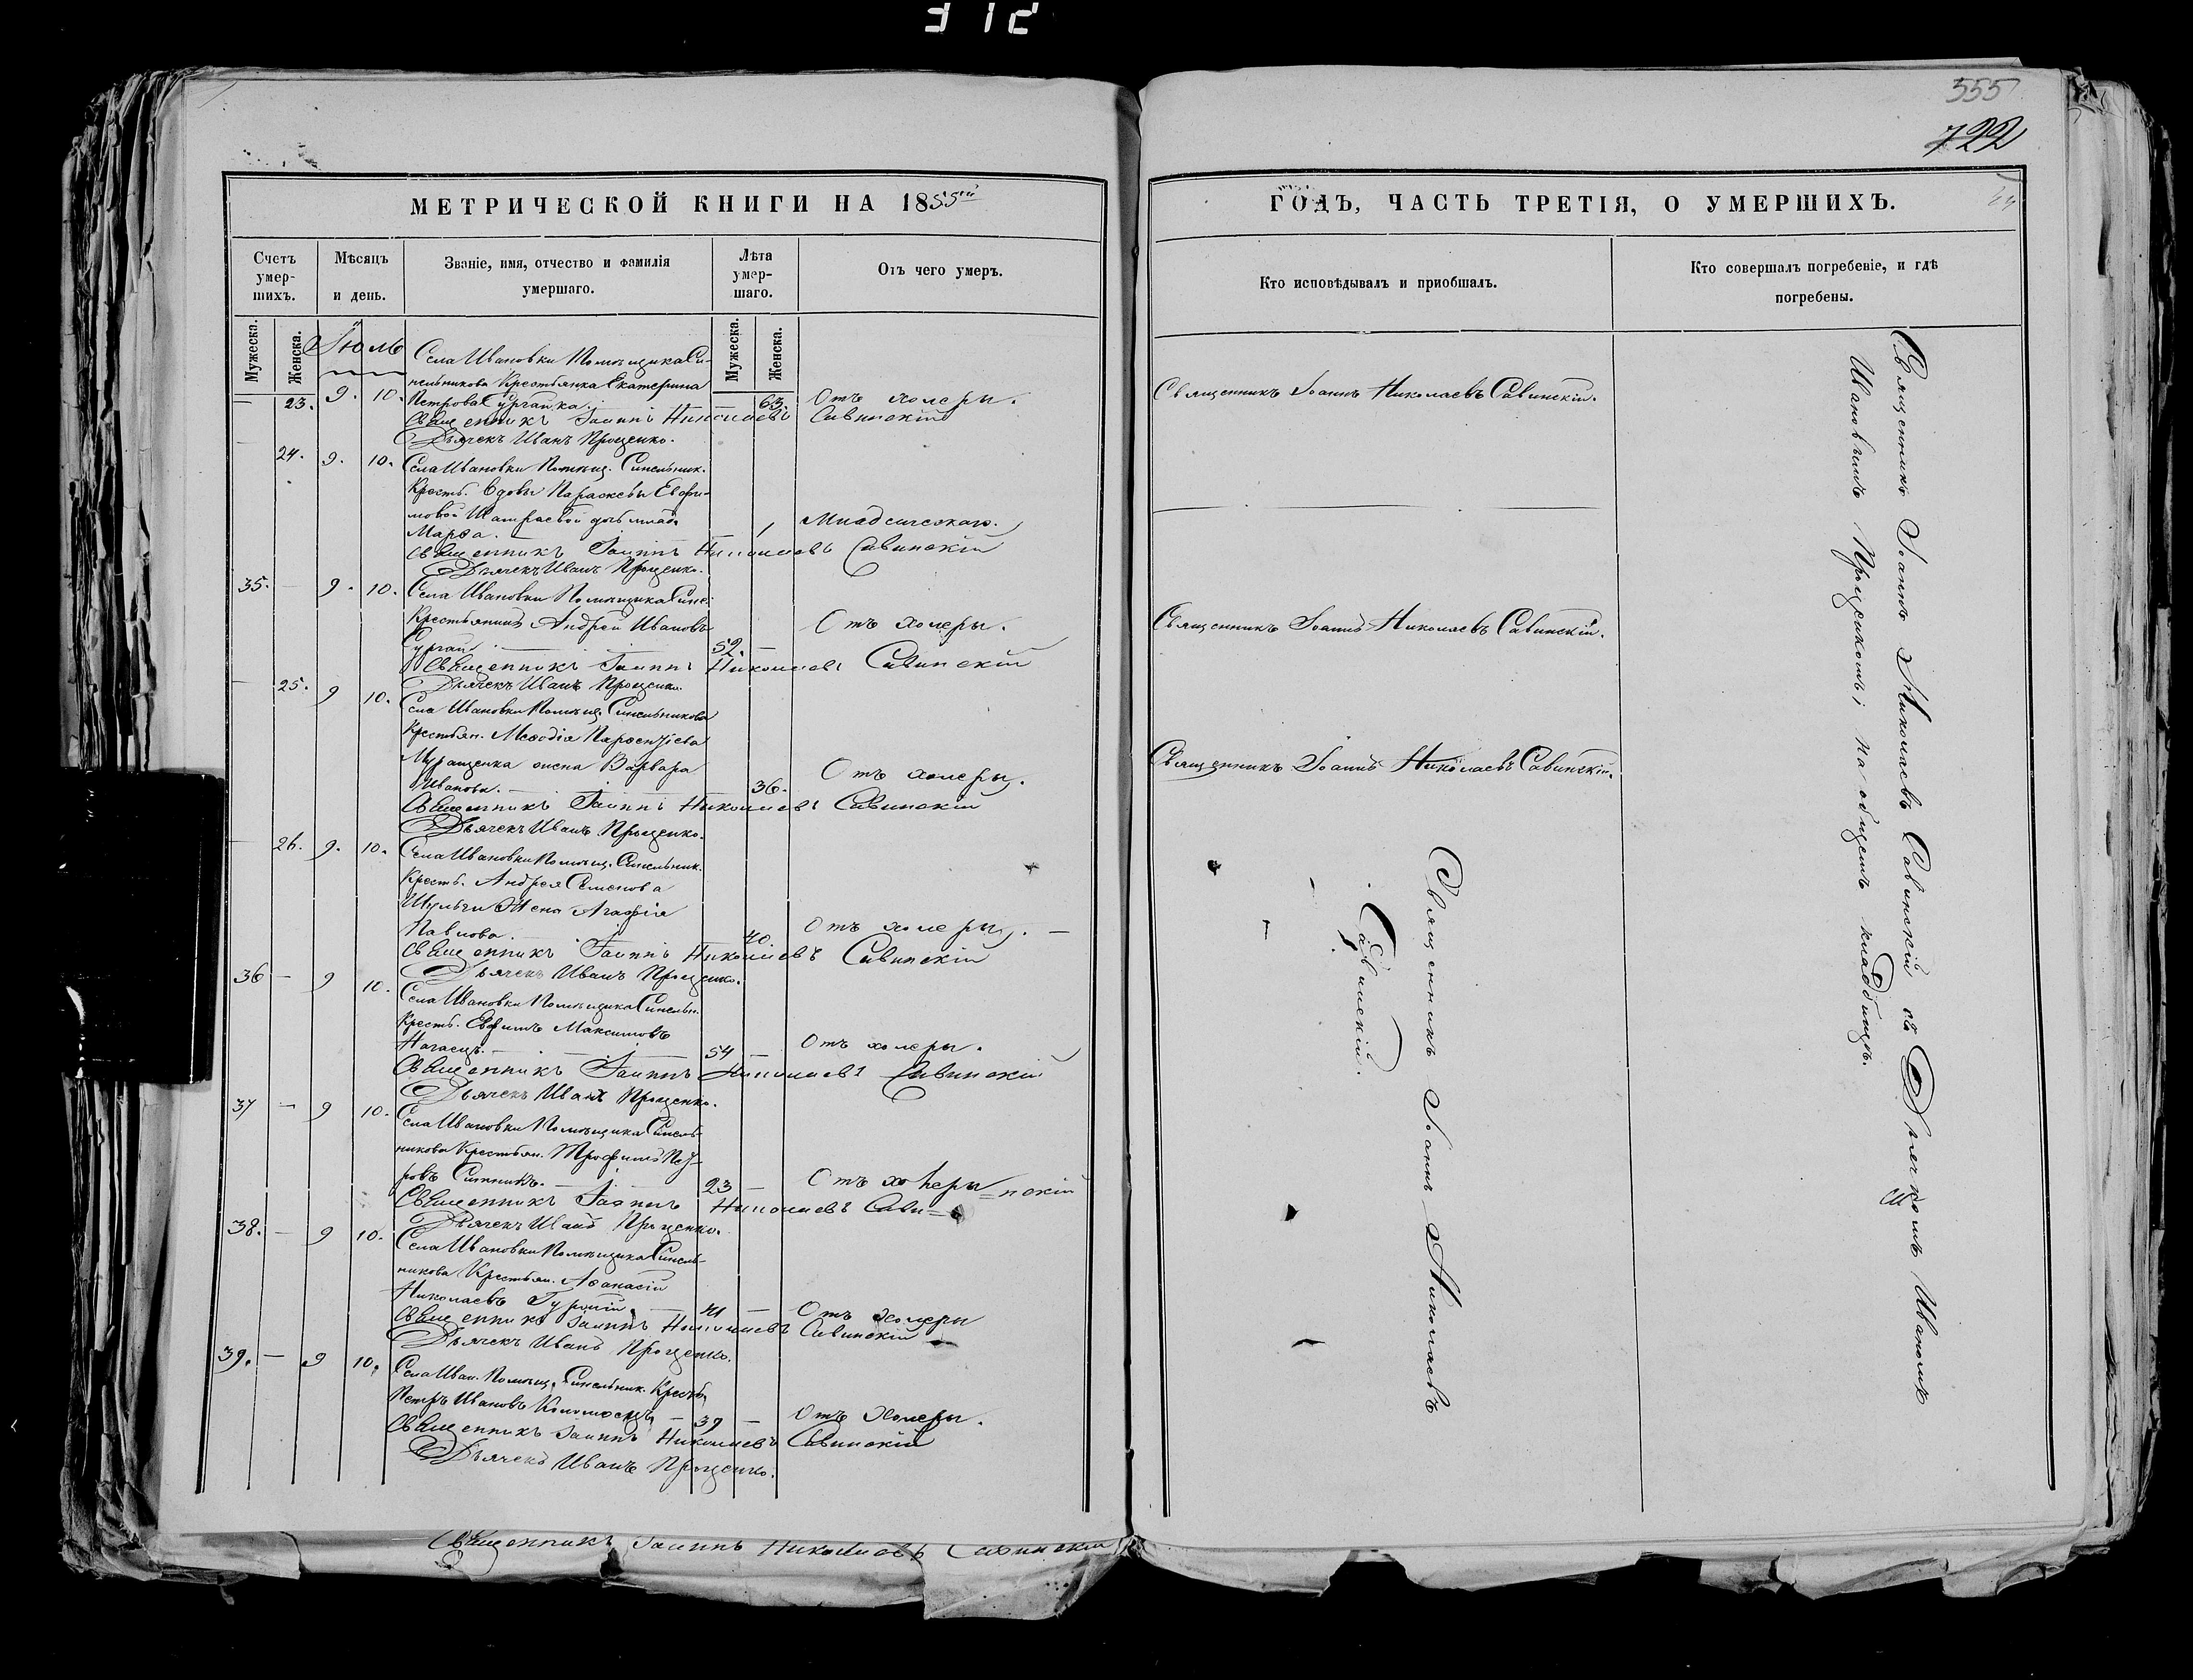 312
555
722
МЕТРИЧЕСКОЙ КНИГИ НА 1855й
Счетъ умер-шихъ.
Мѣсяцъ и день.
Званіе, имя, отчество и фамилія умершаго.
Лѣта умер-шаго.
Отъ чего умеръ.
Мужеска.
Женска.
Мужеска.
Женска.
Іюль
Села Ивановки Помѣщика Си-
нельникова Крестьянка Екатерина
23. 9. 10. Петрова Сургайка. 63. Отъ холеры.
Священникъ Іоаннъ Николаевъ Савинскій
Дьячекъ Иванъ Проценко.
24. 9. 10. Села Ивановки Помѣщ. Синельник.
Крестьб. Вдовы Параскевы Евфи-
мовой дочь млад.
Марѳа. 1 Младенческаго.
Священникъ Іоаннъ Николаевъ Савинскій
Дьячекъ Иванъ Проценко.
35. 9. 10. Села Ивановки Помѣщика Сине.
Крестьянинъ Андрей Ивановъ
Сургай 52. Отъ холеры.
Священникъ Іоаннъ Николаевъ Савинскій
Дьячекъ Иванъ Проценко.
25. 9 10. Села Ивановки Помѣщ. Синельникова
Крестьян. Меѳодія Парѳентіева
Муращенка жена Варвара
Иванова. 36. Отъ холеры.
Священникъ Іоаннъ Николаевъ Савинскій
Дьячекъ Иванъ Проценко.
26. 9. 10. Села Ивановки Помѣщ. Синельник.
Крестьб. Андрея Семенова
Шульги Жена Агафія
Павлова. 40. Отъ холеры.
Священникъ Іоаннъ Николаевъ Савинскій
Дьячекъ Иванъ Проценко.
36 9 10. Села Ивановки Помѣщика Синельн.
Крестьб. Евфимъ Максимовъ
Нагаецъ. 54 Отъ холеры.
Священникъ Іоаннъ Николаевъ Савинскій
Дьячекъ Иванъ Проценко.
37 9 10. Села Ивановки Помѣщика Синель-
никова Крестьян. Трофимъ Пет-
ровъ Ситникъ. 23 Отъ холеры
Священникъ Іоаннъ Николаевъ Сави=нскій
Дьячекъ Иванъ Проценко.
38. 9 10. Села Ивановки Помѣщика Синель-
никова Крестьян. Аѳанасій
Николаевъ 41 Отъ холеры
Священникъ Іоаннъ Николаевъ Савинскій
Дьячекъ Иванъ Проценко.
39. 9 10. Села Иван. Помѣщ. Синельник. Крестьб.
Петръ Ивановъ Коломоецъ 39 Отъ холеры.
Священникъ Іоаннъ Николаевъ Савинскій
Дьячекъ Иванъ Проценко.
Священникъ Іоаннъ Николаевъ Савинскій
ГОДЪ, ЧАСТЬ ТРЕТІЯ, О УМЕРШИХЪ.
Кто исповѣдывалъ и пріобщалъ.
Кто совершалъ погребеніе, и гдѣ погребены.
Священникъ Іоаннъ Николаевъ Савинскій.
Священникъ Іоаннъ Николаевъ Савинскій.
Священникъ Іоаннъ Николаевъ Савинскій.
Священникъ Іоаннъ Николаевъ
Савинскій.
Священникъ Іоаннъ Николаевъ Савинскій съ Дьячкомъ Иваномъ
Ивановымъ Проценкомъ; на общемъ кладбищѣ.